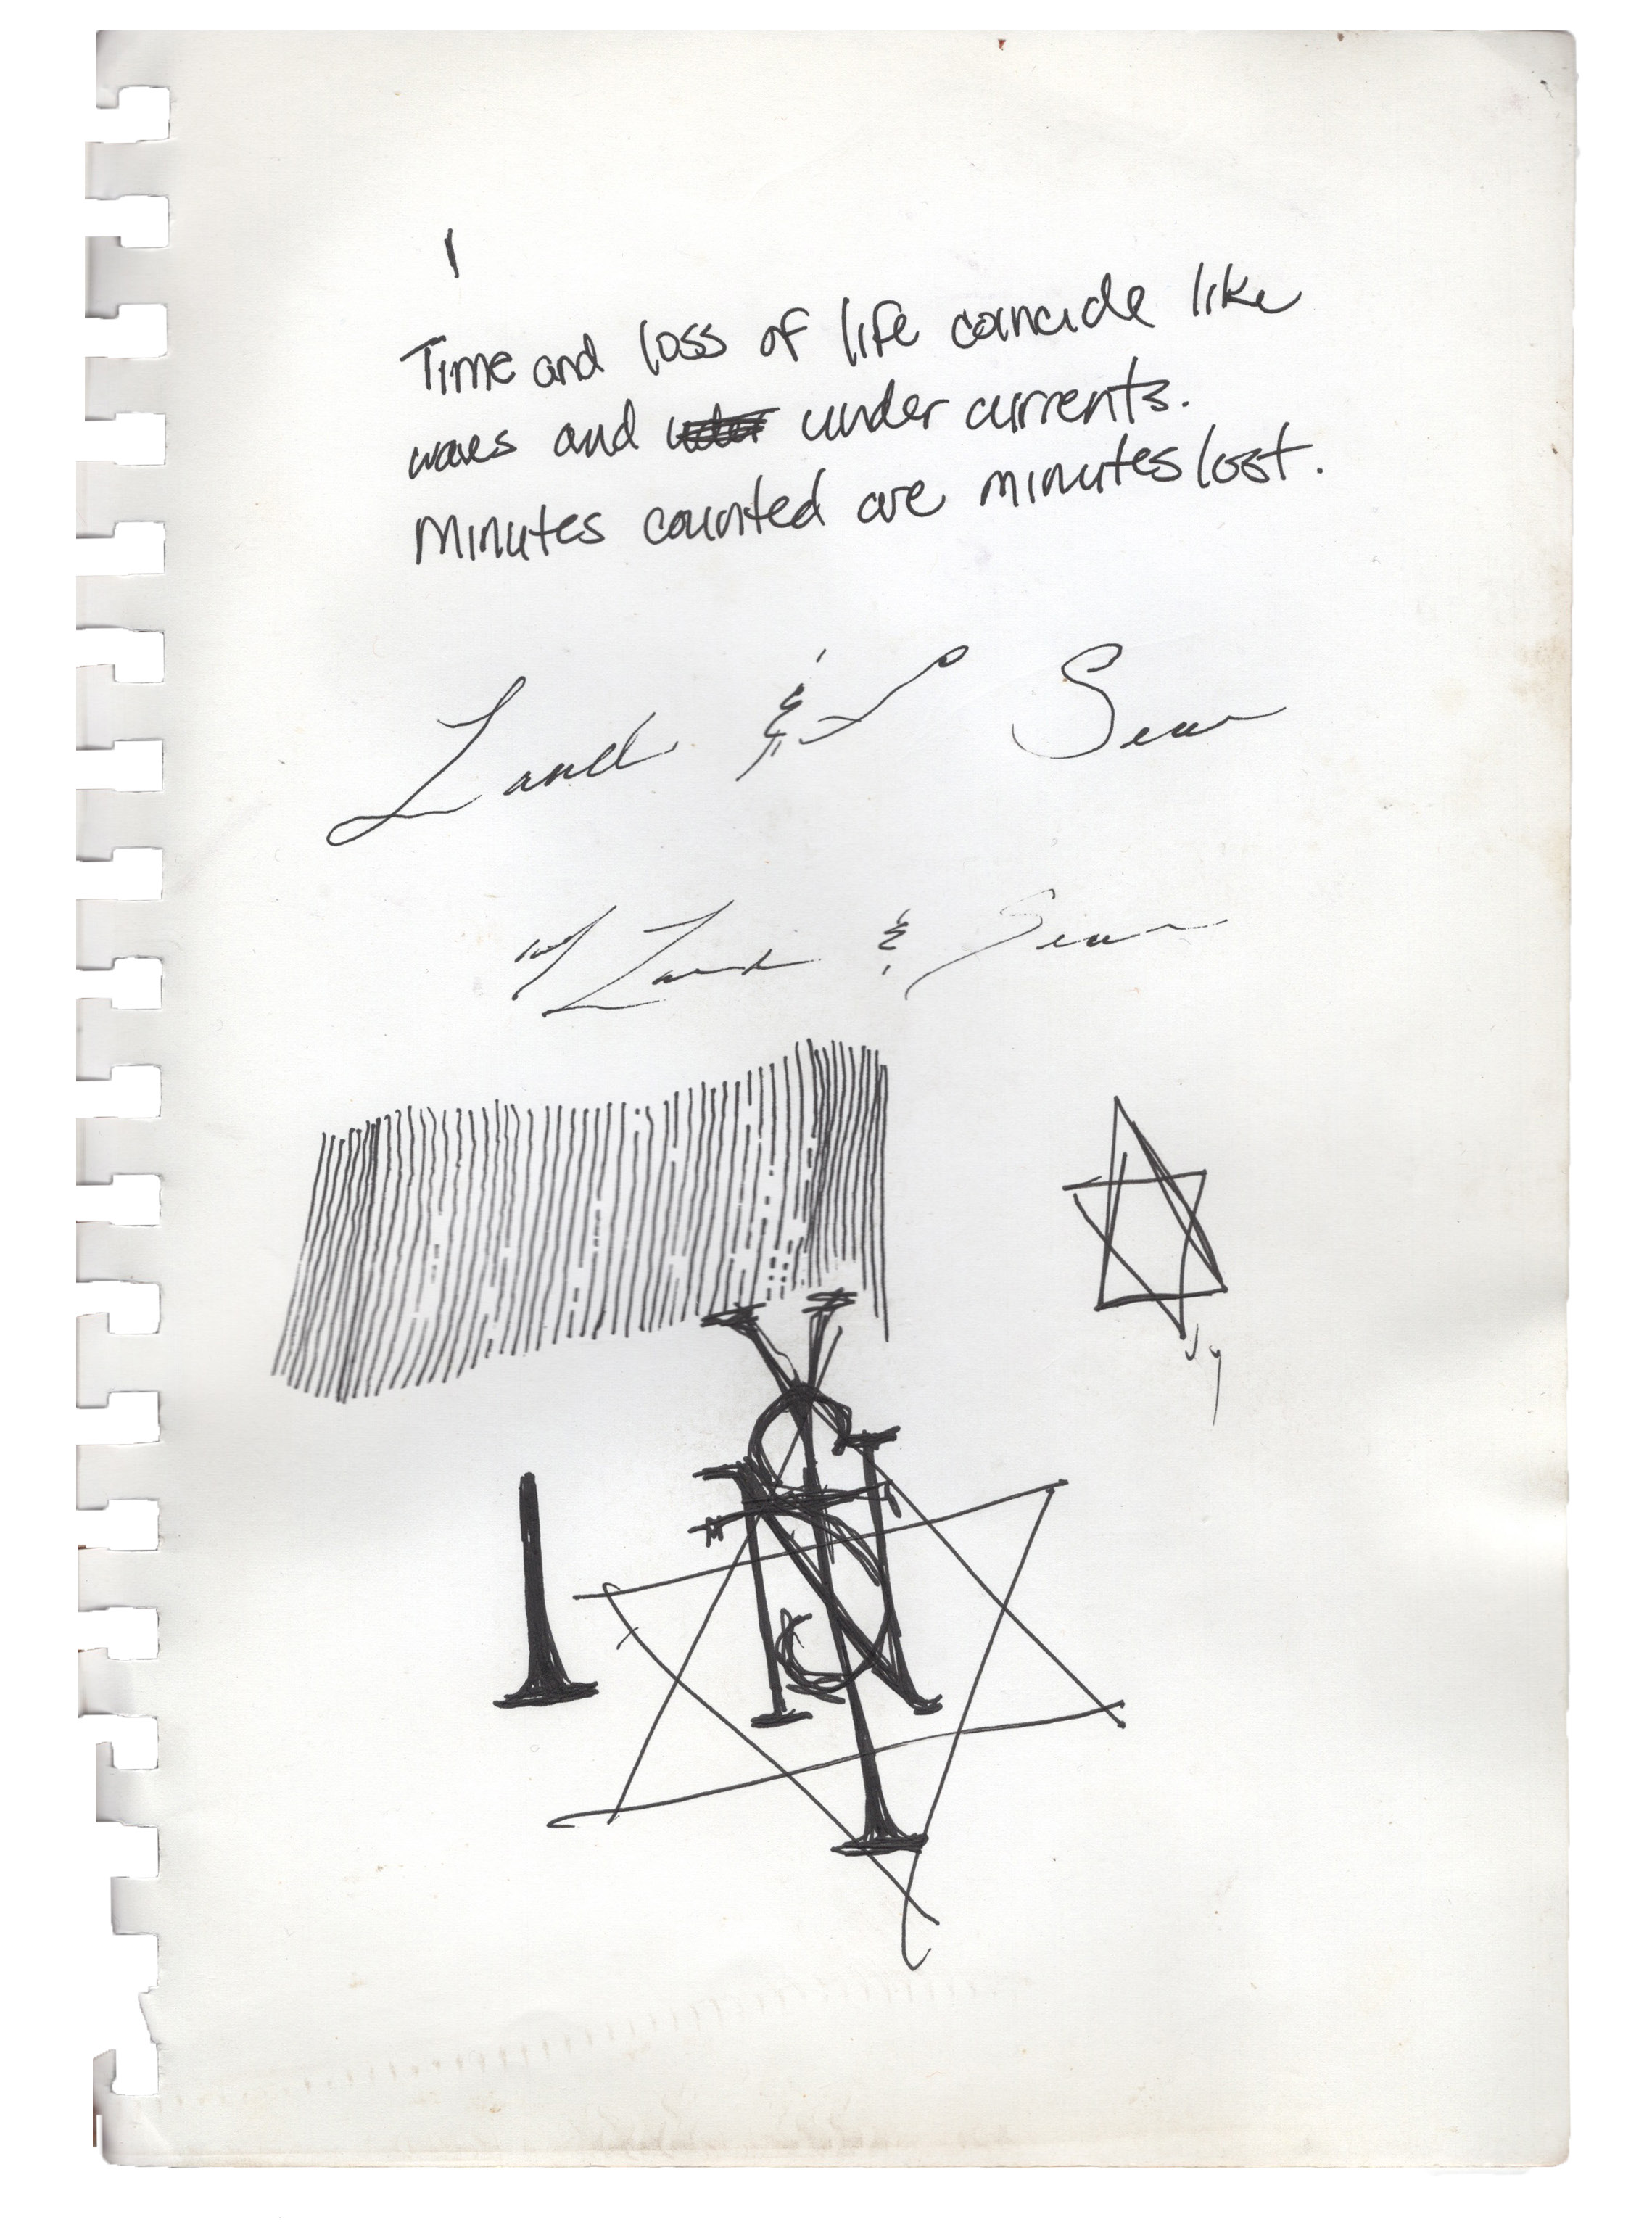 Time and loss of life coincide like
waves and under currents.
Minutes counted are minutes lost.
Land & Sea
Land & Sea